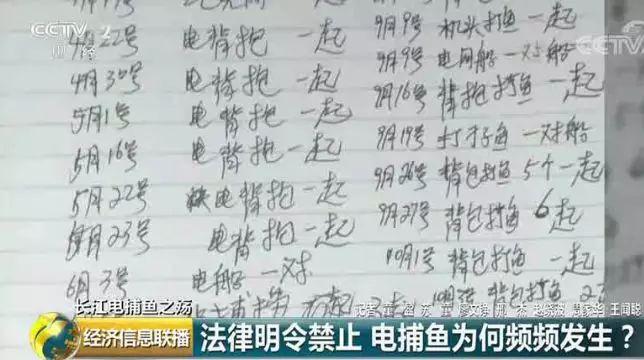 CCTV 2
财经
CCTV
4月22号 电背抱 一起
4月30号 电背抱 一起
5月1号 电背抱 一起
5月16号 电背抱 一起
5月22号 电背抱 一起
月23号 电背抱 一起
6月3号 电船 一对
9月9号 机头打鱼 一起
9月9号 电网船 一对船
9月16号 背抱打鱼 一起
9月19号 打子鱼 一对船
9月26号 背包打鱼 5个一起
9月27号 背包打鱼 6起
10月1号 背包打鱼 一起
背包打鱼
长江电捕鱼之殇
记者
王闻聪
经济信息联播
法律明令禁止 电捕鱼为何频频发生？